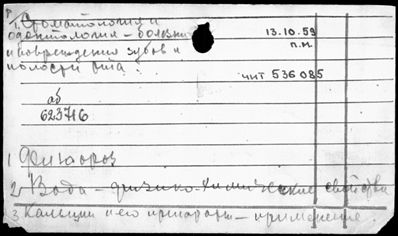 1. Стоматология и
одонтология – болезни
и повреждения зубов и
полости рта.
13.10.59
п.м.
чит 536085
аб
623716
1 Флюороз
2 Вода – физико-химические свойства
3 Кальций и его препараты – применение.